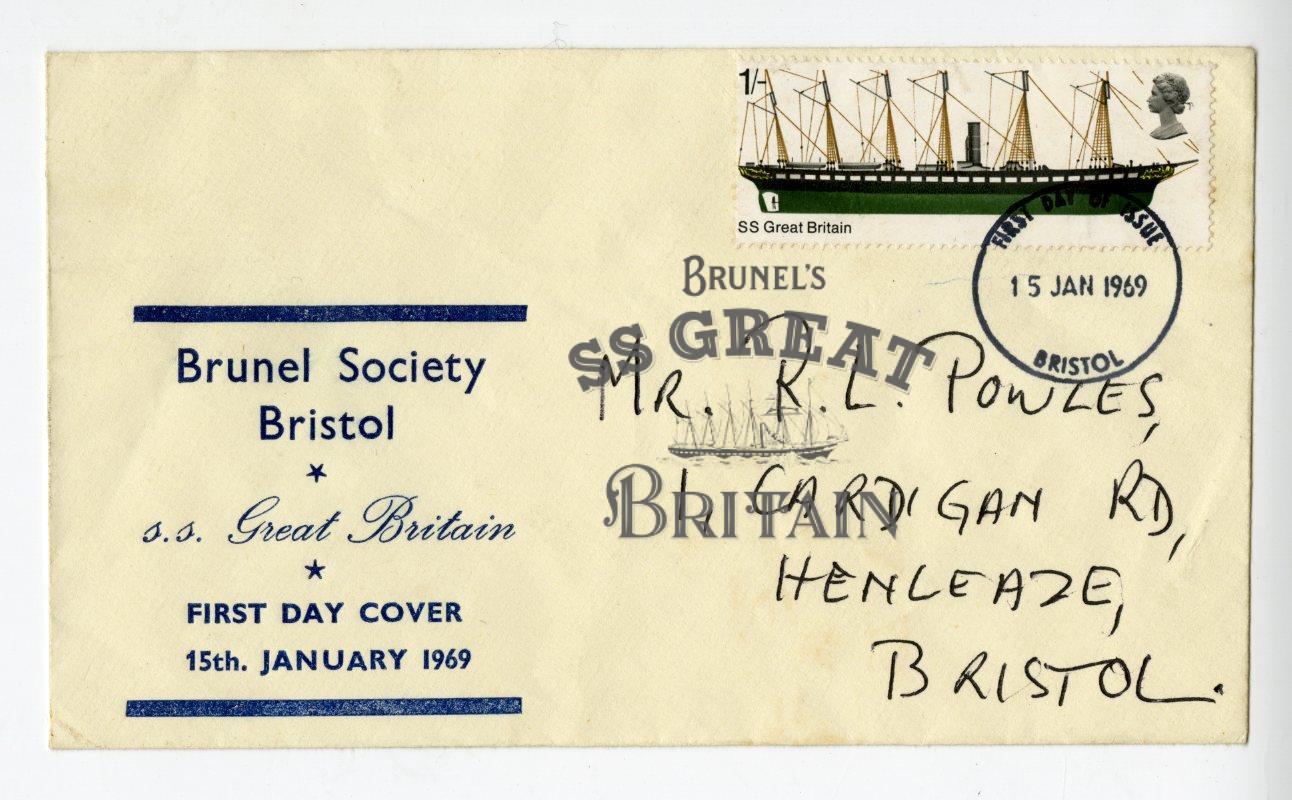 1/-
SS Great Britain
FIRST DAY OF ISSUE
15 JAN 1969
BRISTOL
BRUNEL'S
SS GREAT
BRITAIN
Brunel Society
Bristol
s.s. Great Britain
FIRST DAY COVER
15th. JANUARY 1969
MR. R.L. POWLES,
1, CARDIGAN RD,
HENLEAZE,
BRISTOL.